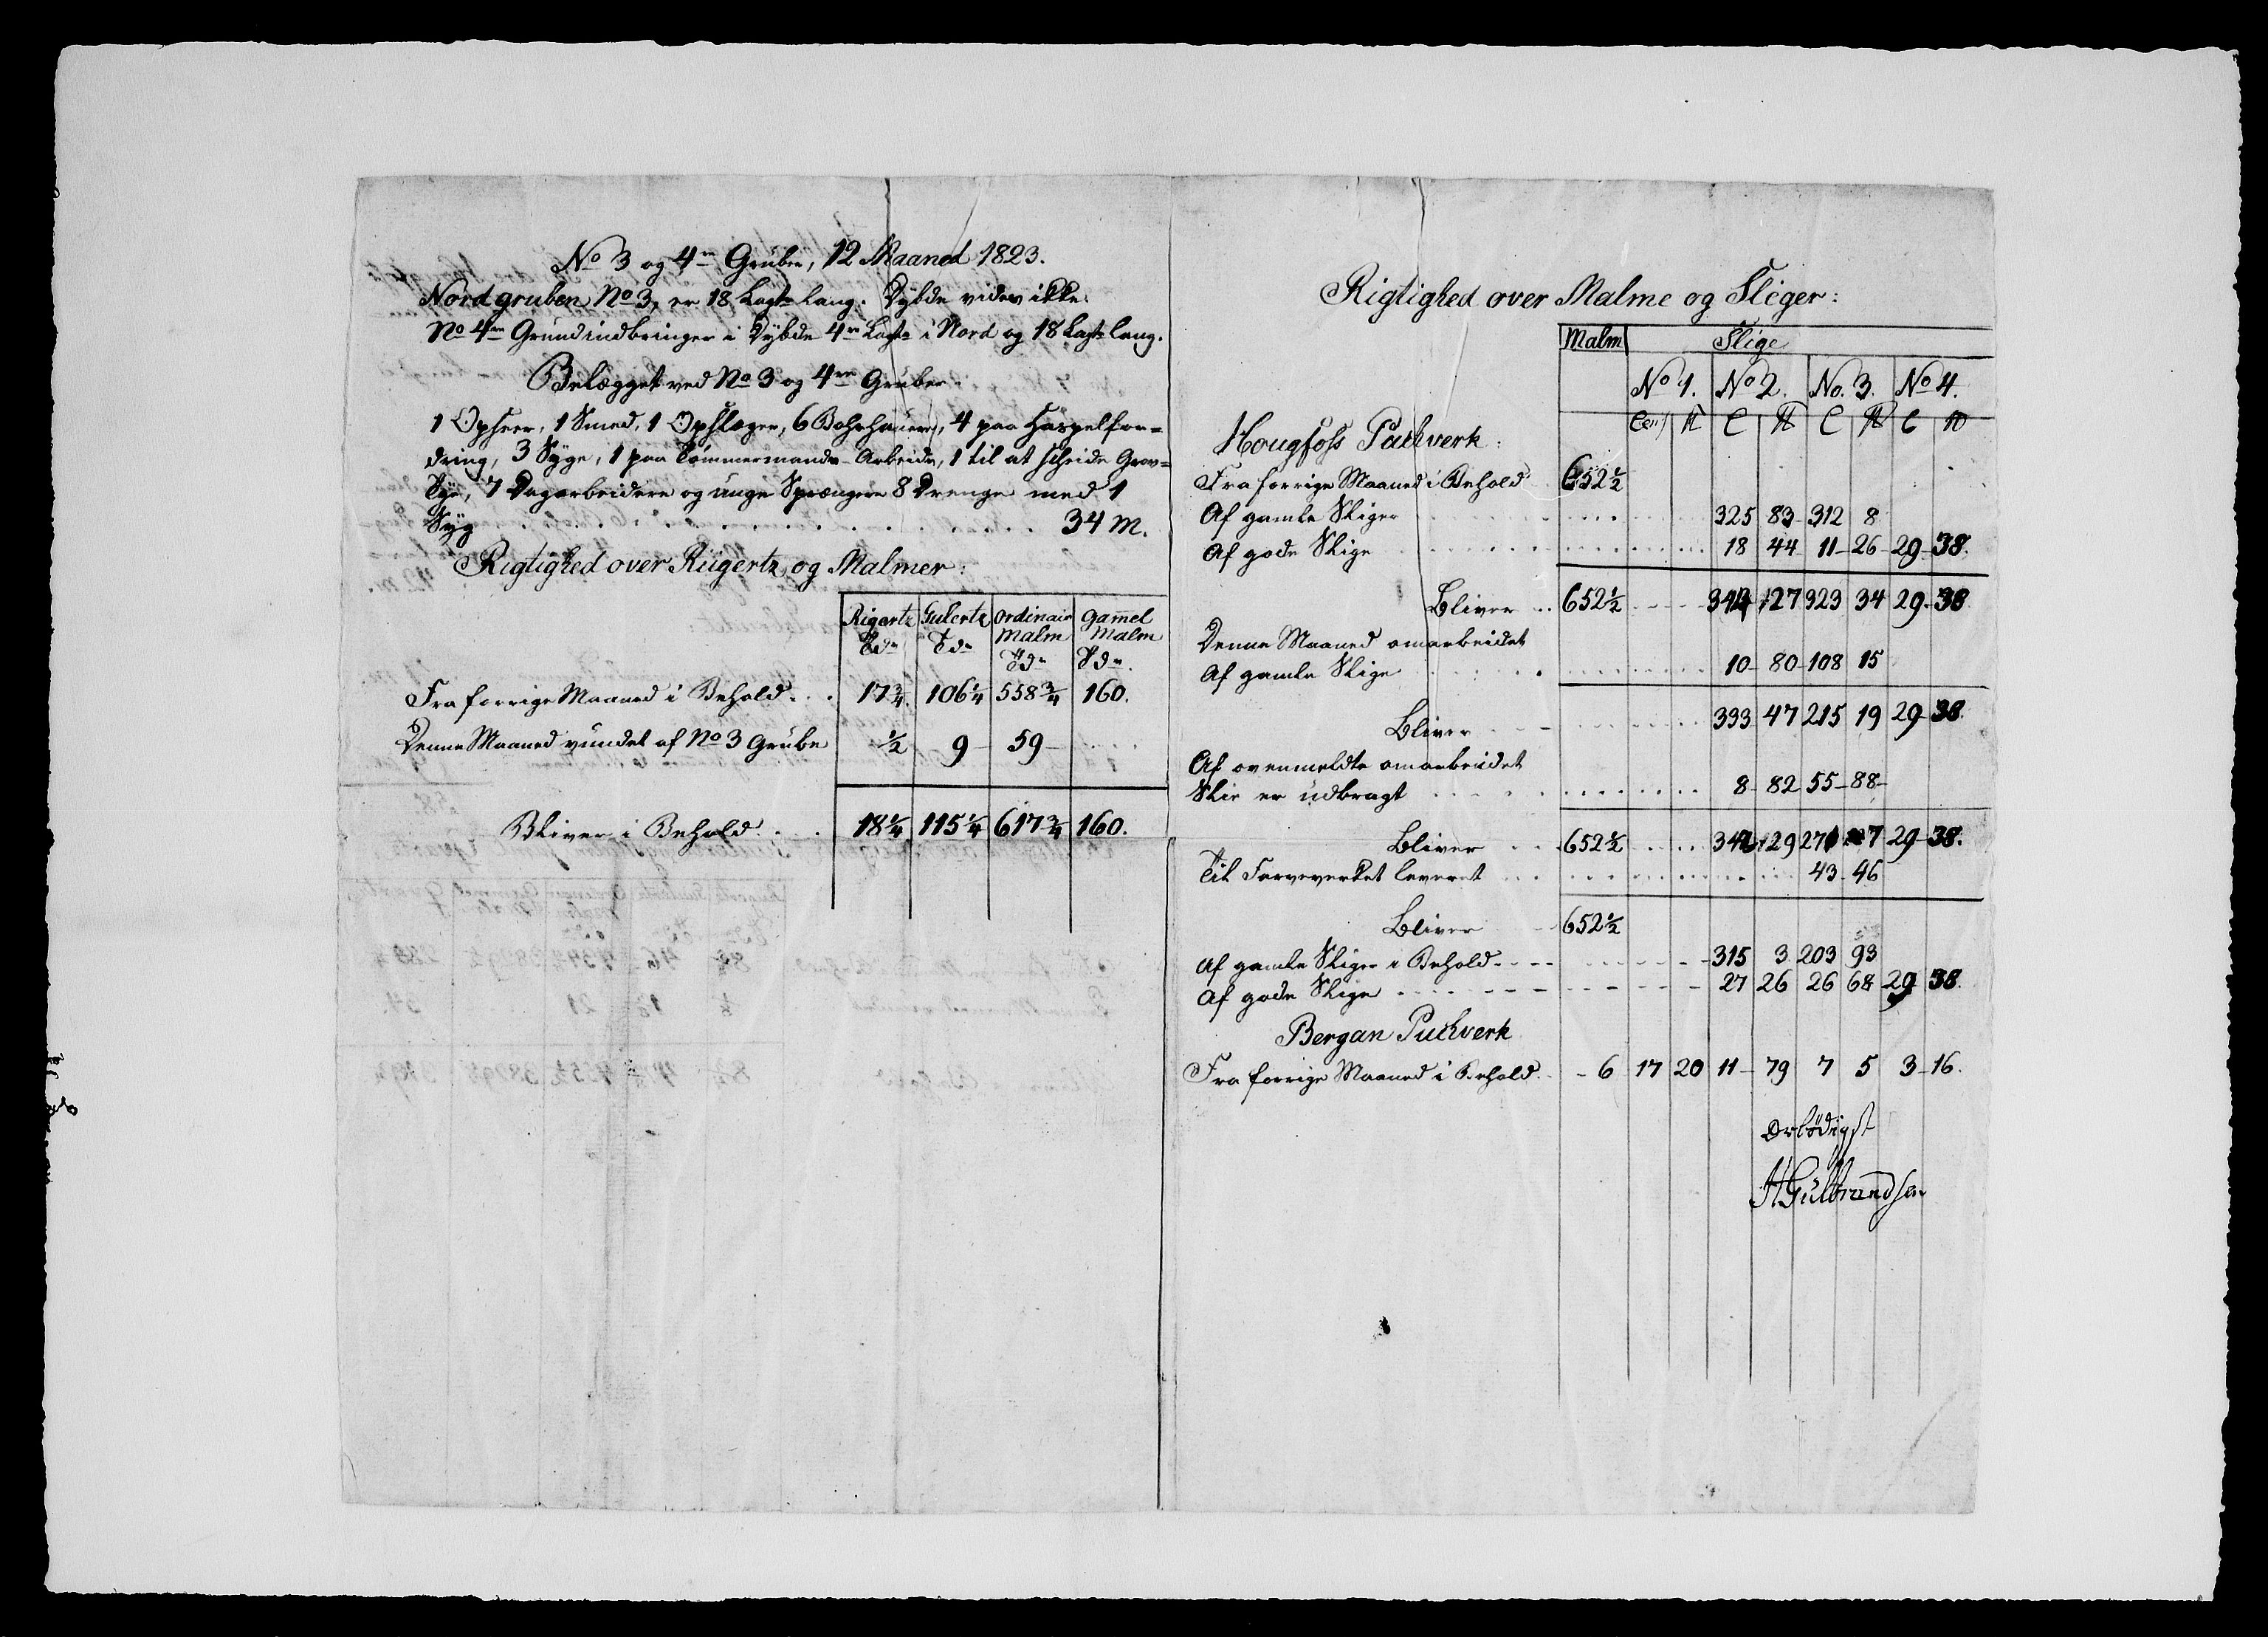 No 3 og 4re Gruber, 12 Maaned 1823.
Nordgruben No 3, er 18 Lagtr lang. Dybde vides ikke.
No 4re Grund indbringer i Dybde 4re Lagtr i Nord og 18 Lagtr lang.
Belægget ved No 3 og 4re Gruber.
1 Opseer, 1 Smed, 1 Opslager, 6 Bohrhauere, 4 paa Haspelfor=
dring, 3 Syge, 1 paa Tømmermands Arbeide, 1 til at scheide
7 Dagarbeidere og unge Sprængere 8 Drenge med 1
Syg 34 M.
Rigtighed over Riigertz og Malmer:
Rigertz Gulertz ordinair gam̅el
Tdr Tdr Malm Malm
Tdr Tdr.
Fra forrige Maaned i Behold 17¾ 106¼ 558¾ 160.
Denne Maaned vundet af No 3 Grube ½ 9 59
Bliver i Behold 18¼ 115¼ 617¾ 160.
Rigtighed over Malme og Sliger:
Malm Slige
No 1. No 2. No. 3. No 4.
C C C
Hougfoss Puchverk:
Fra forrige Maaned i Behold 652½
Af gamle Sliger 325 83 312 8
Af gode Slige 18 44 11 26 29 38.
Bliver 652½ 127 323 34 29 38
Denne Maaned omarbeidet
Af gamle Slige 10 80 108 15
Bliver 333 47 215 19 29 38.
Af ovenmeldte omarbeidet
Slie er udbragt 8 82 55 88
Bliver 652½ 129 7 29 38.
Til Farveverket leveret 43 46
Bliver 652½
Af gamle Sliger i Behold 315 3 203 93
Af gode Slige 27 26 26 68 29 38.
Bergan Puchverk
Fra forrige Maaned i Behold 6 17 20 11 79 7 5 3 16.
Ærbødigst
HGulbrandsen